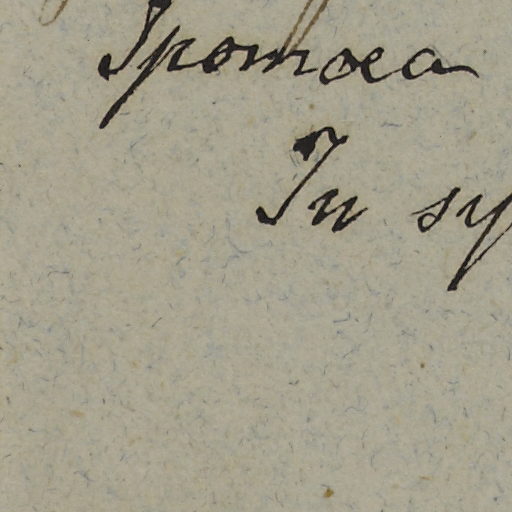 Ipomoea
In sy